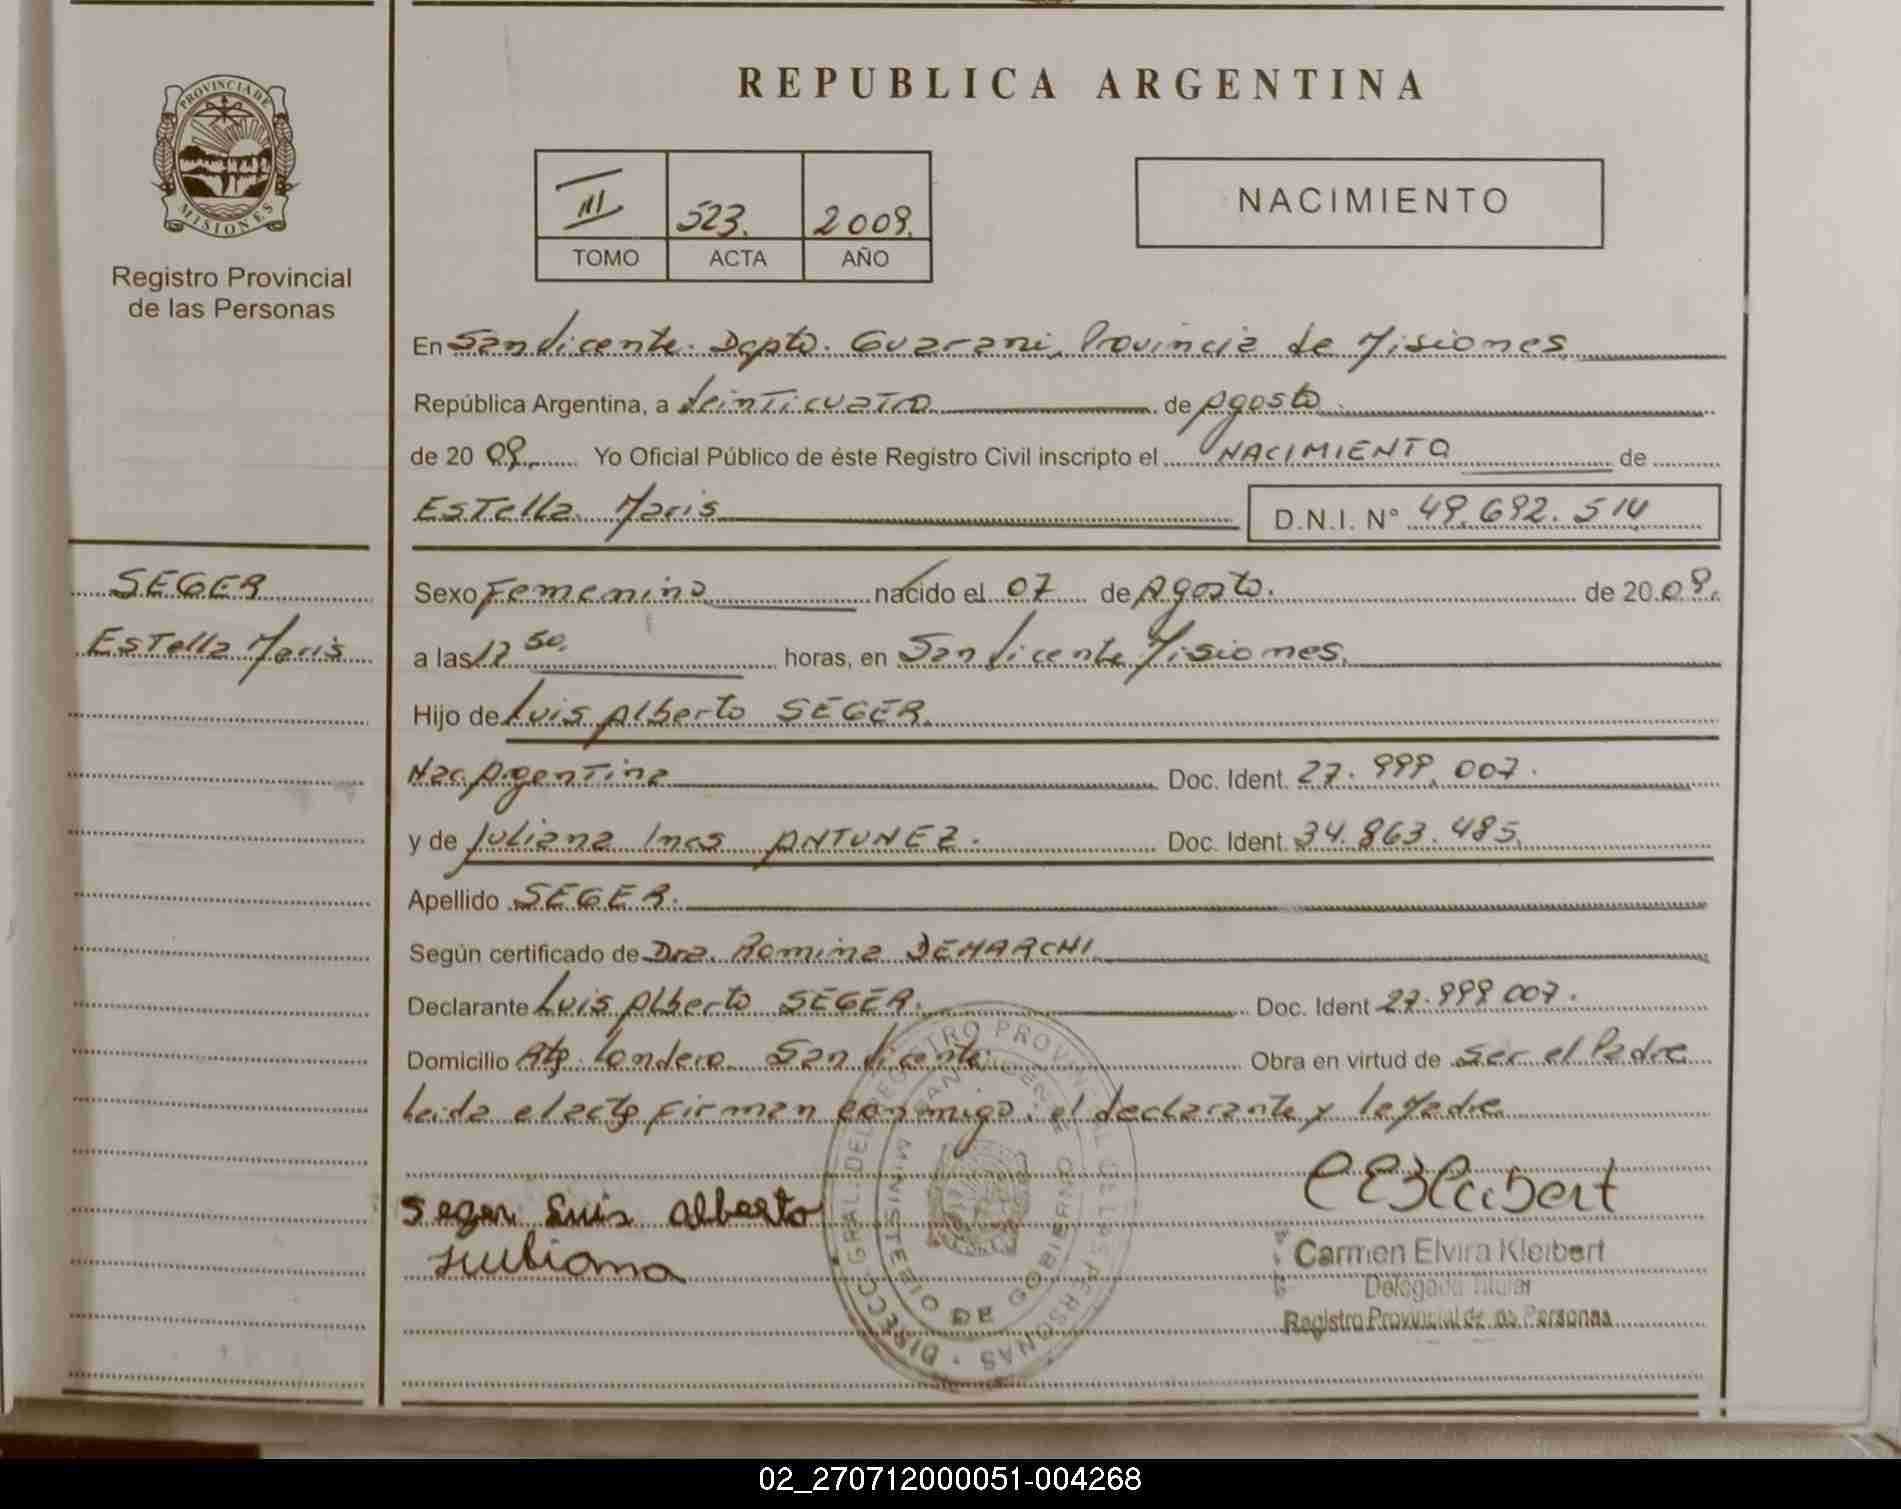 PROVINCIA DE
MISIONES
Registro Provincial
de las Personas
REPUBLICA ARGENTINA
III 523. 2009.
TOMO ACTA AÑO
NACIMIENTO
En San Vicente. Dpto. Guarani, Provincia de Misiones
República Argentina, a Veinticuatro de Agosto
de 2009. Yo Oficial Público de éste Registro Civil inscripto el NACIMIENTO de
Estella Maris D.N.I. N° 49.692.514
SEGER
Estella Maris
Sexo Femenino nacido el 07 de Agosto. de 2009.
a las 12 50. horas, en San Vicente Misiones.
Hijo de Luis Alberto SEGER.
Nac. Argentina Doc. Ident. 27.999.007.
y de Juliana Ines ANTUNEZ. Doc. Ident. 34.863.485.
Apellido SEGER.
Según certificado de Dra. Romina DEMARCHI
Declarante Luis Alberto SEGER. Doc. Ident 27.999.007.
Domicilio Londero San Vicente. Obra en virtud de ser el Padre
Leida el acta firman conmigo, el declarante y la Madre
Seger Luis Alberto
Juliana
DIRECC. GRAL. DEL REGISTRO PROVINCIAL DE LAS PERSONAS
SAN VICENTE
MINISTERIO DE GOBIERNO
Carmen Elvira Kleibert
Delegada Titular
Registro Provincial de las Personas
02_270712000051-004268